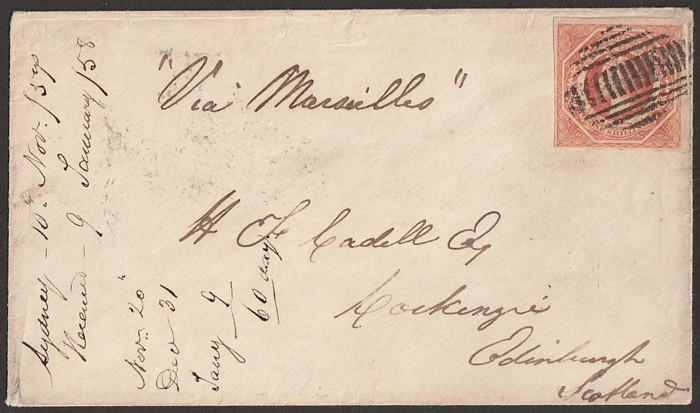 "Via Marseilles"
H F Cadell Esq
Cockenzie
Edinburgh
Scotland
Sydney - 10 Nov. /57
Received - 9 January /58
Nov. 20
Dec 31
Jany 9
60 days
SHILL